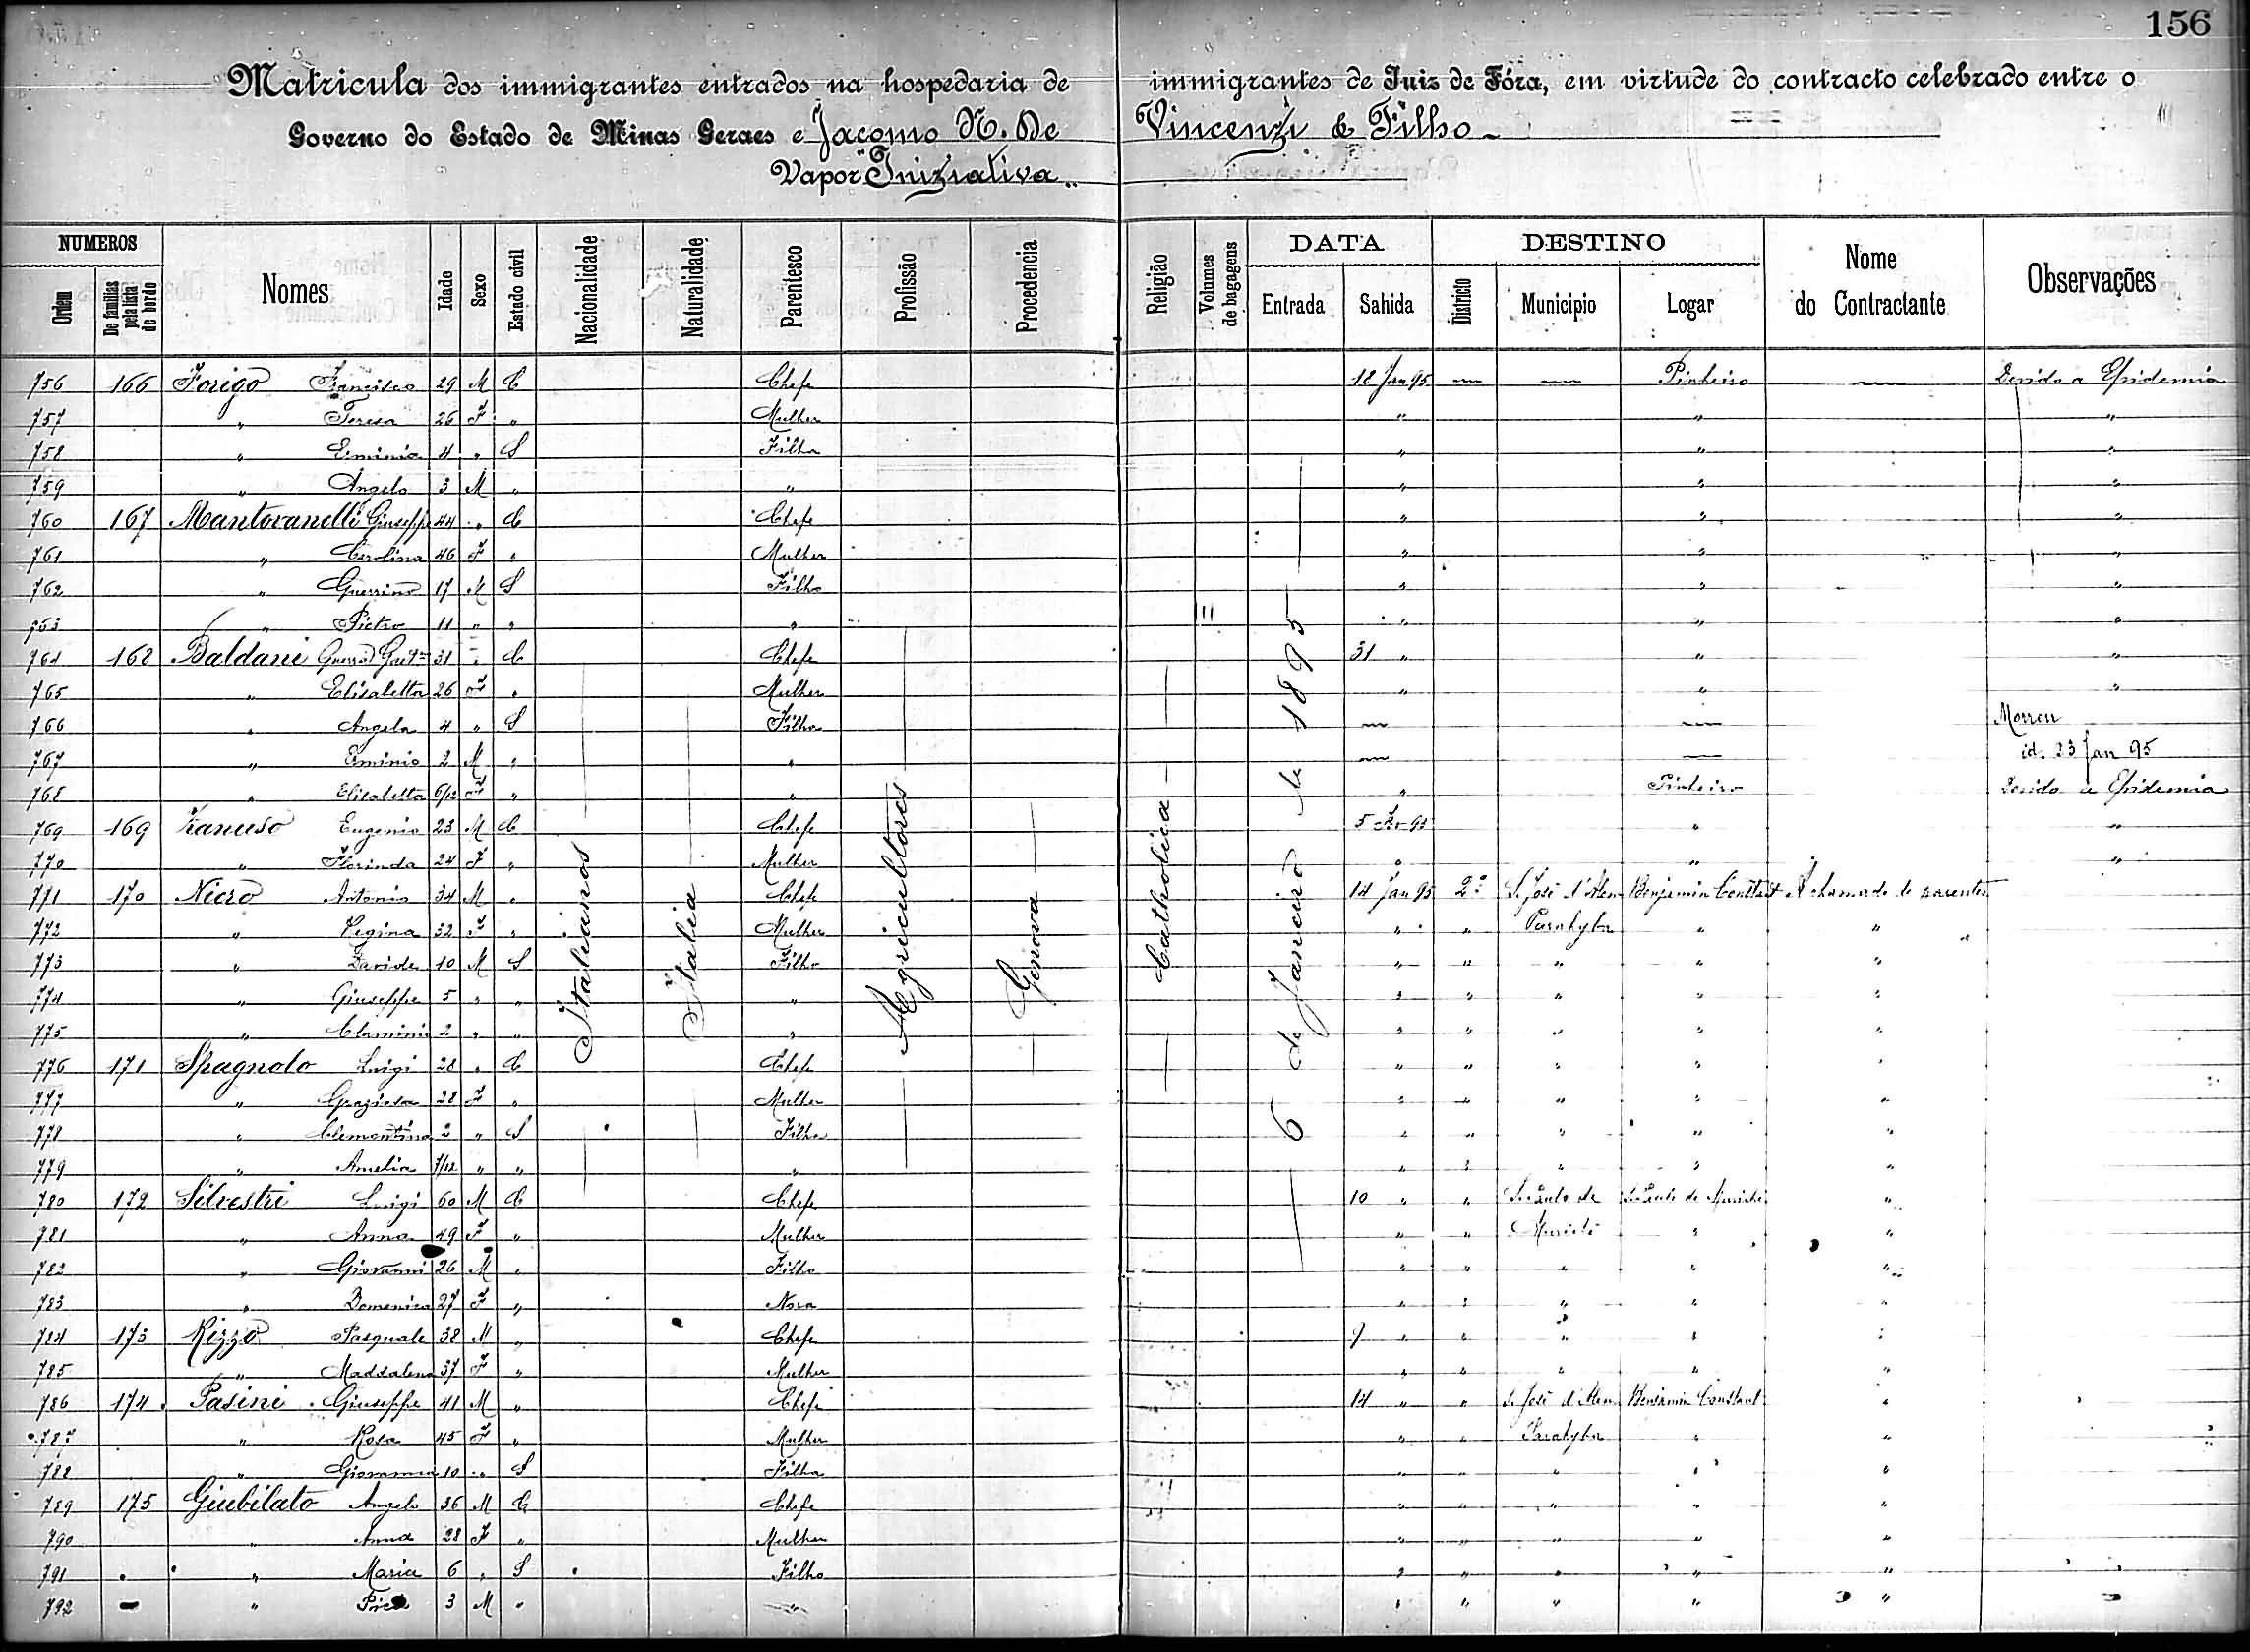 156
Matricula dos immigrantes entrados na hospedaria de immigrantes de Juiz de Fóra, em virtude do contracto celebrado entre o
Governo do Estado de Minas Geraes e Jacomo N. De Vincenzi & Filho
Vapor "Iniziativa"
NUMEROS DATA DESTINO
Ordem De familias pela lista de bordo Nomes Idade Sexo Estado civil Nacionalidade Naturalidade Parentesco Profissão Procedencia Religião Volumes de bagagens Entrada Sahida Districto Municipio Logar Nome do Contractante Observações
Italianos Italia Agricultores Genova Catholica 6 de Janeiro de 1895
756 166 Forigo Francisco 29 M C Chefe 18 Jan 95 — — Pinheiro — Devido a Epidemia
757 " Teresa 26 F " Mulher " " "
758 " Erminia 4 " S Filha " " "
759 " Angelo 3 M " " " " "
760 167 Mantovanelli Giuseppe 44 " C Chefe " " "
761 " Carolina 46 F " Mulher " " "
762 " Guerrino 17 M S Filho " " "
763 " Pietro 11 " " " " " "
764 168 Baldani 31 " C Chefe 31 " " "
765 " Elisabetta 26 F " Mulher " " "
766 " Angela 4 " S Filha — — Morreu
767 " Erminio 2 M " " — — id. 23 Jan 95
768 " Elisabetta 6/12 F " " " Pinheiro Devido a Epidemia
769 169 Eugenio 23 M C Chefe 5 Fev 95 " "
770 " Florinda 24 F " Mulher " " "
771 170 Nicro Antonio 34 M " Chefe 14 Jan 95 2º S. José d'Alem Benjamin Constant A chamado de parentes
772 " Regina 32 F " Mulher " " Parahyba " "
773 " Davide 10 M S Filho " " " " "
774 " Giuseppe 5 " " " " " " " "
775 " 2 " " " " " " " "
776 171 Spagnolo Luigi 28 " C Chefe " " " " "
777 " Graziosa 28 F " Mulher " " " " "
778 " Clementina 2 " S Filha " " " " "
779 " Amelia 7/12 " " " " " " " "
780 172 Silvestri Luigi 60 M C Chefe 10 " "
781 " Anna 49 F " Mulher " " " "
782 " Giovanni 26 M " Filho " " " " "
783 " Domenica 27 F " Nora " " " " "
784 173 Rizzo Pasquale 38 M " Chefe 9 " " " " "
785 " Maddalena 37 F " Mulher " " " " "
786 174 Pasini Giuseppe 41 M " Chefe 14 " " S. José d'Alem Benjamin Constant "
787 " Rosa 45 F " Mulher " " Parahyba " "
788 " Giovanna 10 " S Filha " " " " "
789 175 Giubilato Angelo 36 M C Chefe " " " " "
790 " Anna 28 F " Mulher " " " " "
791 " Maria 6 " S Filho " " " " "
792 " 3 M " " " " " " "